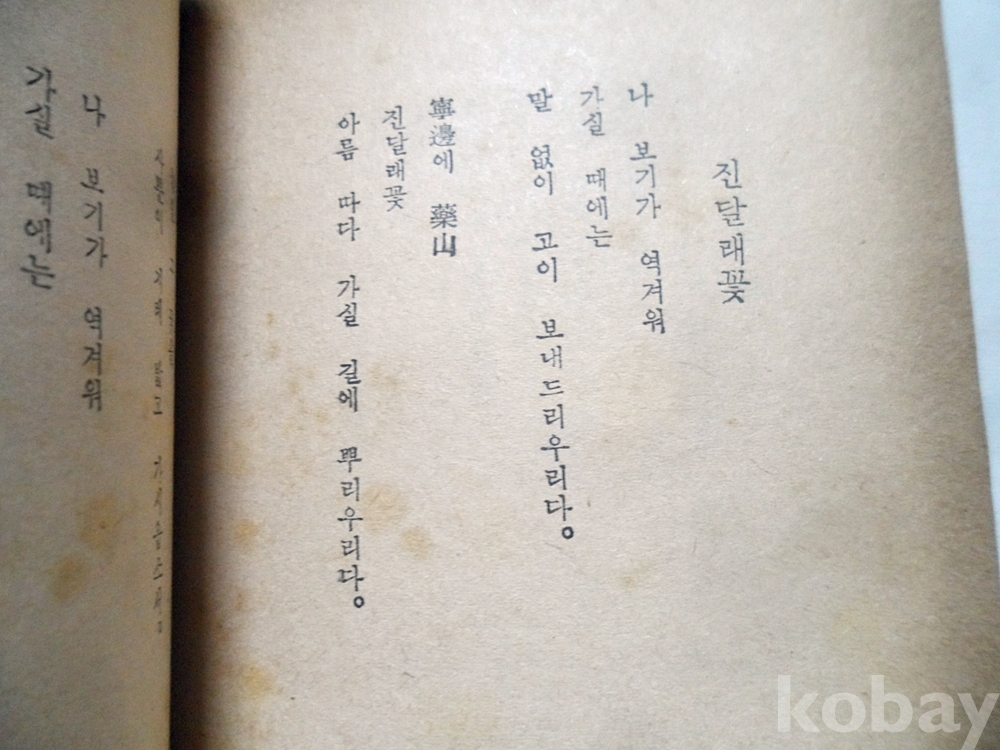 진달래꽃
나 보기가 역겨워
가실 때에는
말 없이 고이 보내드리우리다。
寧邊에 藥山
진달래꽃
아름 따다 가실 길에 뿌리우리다。
나 보기가 역겨워
가실 때에는
kobay